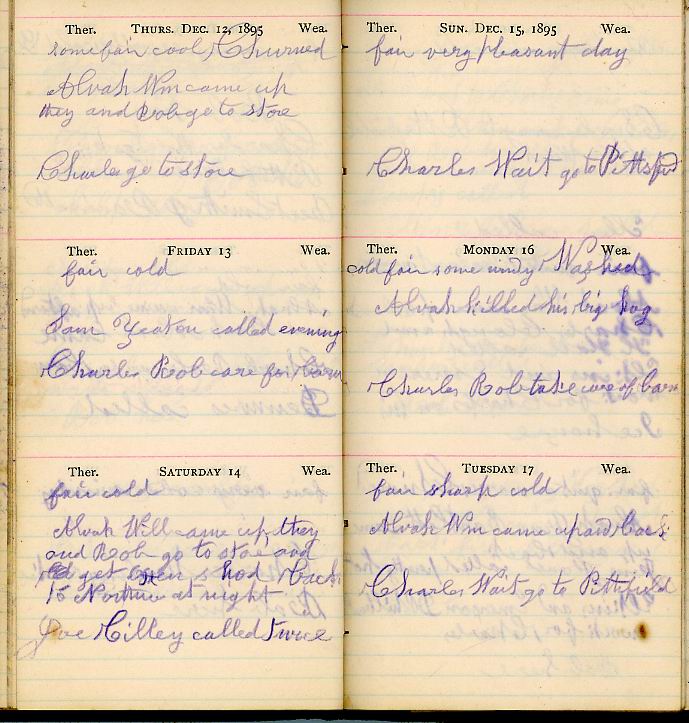 Ther. THURS. DEC. 12, 1895 Wea.
some fair cool Churned
Alvah Wm came up
they and Rob go to store
Charles go to store
Ther. FRIDAY 13 Wea.
fair cold
Sam Yeaton called evening
Charles Rob care for barn
Ther. SATURDAY 14 Wea.
fair cold
Alvah Will came up they
and Rob go to stoe and
get oxen shod back
to at night
Joe Hilley called twice
Ther. SUN. DEC. 15, 1895 Wea.
fair very pleasant day
Charles Wait go to Pittsfield
Ther. MONDAY 16 Wea.
cold fair some windy Washed
Alvah killed his big hog
Charles Rob take care of barn
Ther. TUESDAY 17 Wea.
fair sharp cold
Alvah Wm came up and back
Charles Wait go to Pittsfield